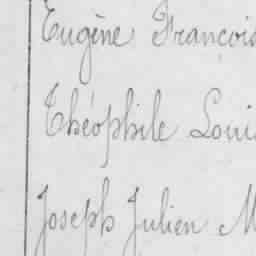 Eugène François
Théophile Louis
Joseph Julien M